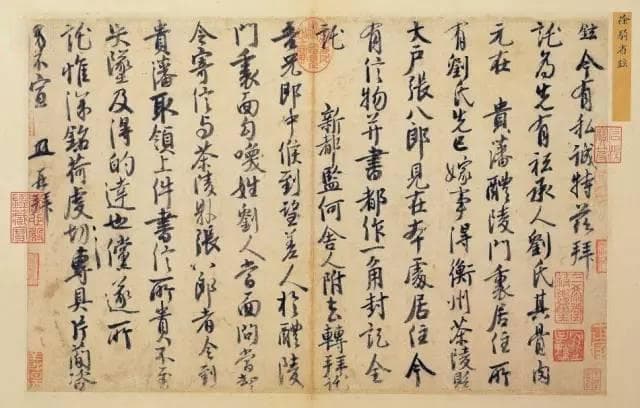 徐騎省鉉
鉉今有私誠特茲拜
託為先有祗承人劉氏其骨肉
元在 貴藩醴陵門裏居住所
有劉氏先已嫁事得衡州茶陵縣
大戶張八郎見在本處居住今
有信物并書都作一角封記全
託 新都監何舍人附去轉拜託
吾兄郎中候到望差人於醴陵
門裏面勾喚姓劉人當面問當卻
令寄信与茶陵縣張八郎者令到
貴藩取領上件書信所貴不至
失墜及得的達也儻遂所
託惟深銘荷虔切專具片簡咨
聞不宣 鉉再拜